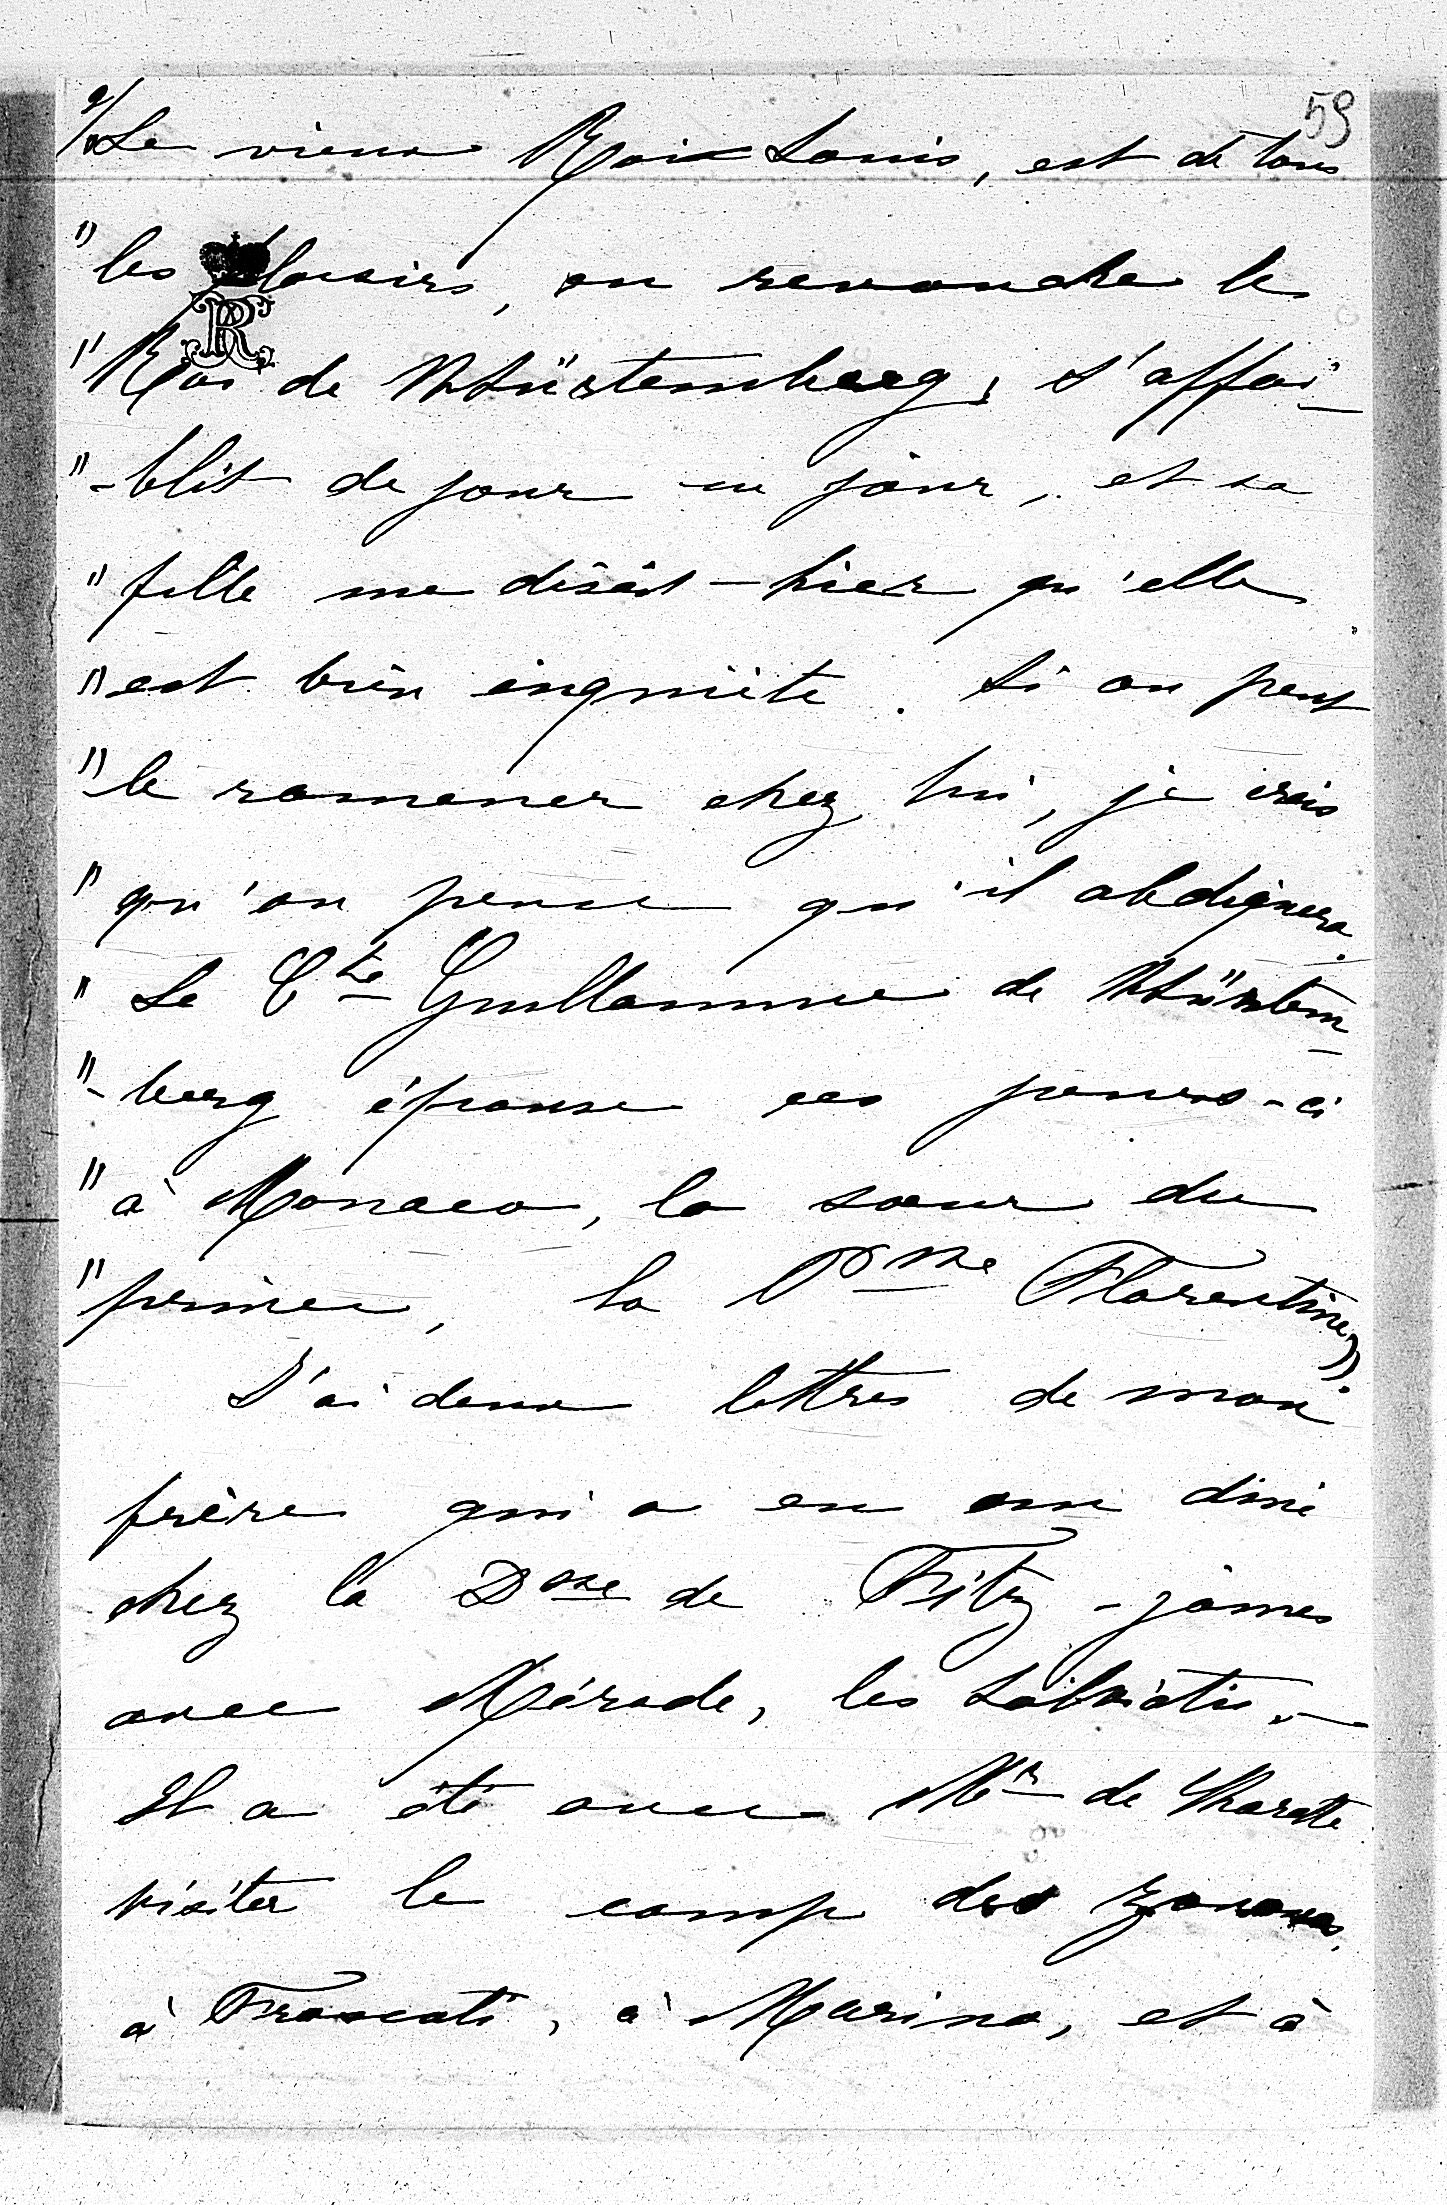 59
2/ "Le vieux Roi Louis, est de tous
"les plaisirs, en revanche le
"Roi de Würtemberg, s'affai-
"-blit de jour en jour, et sa
"fille me disait hier qu'elle
"est bien inquiète. Si on peut
"le ramener chez lui, je crois
"qu'on pense qu'il abdiquera.
"Le Cte Guillaume de Würtem-
"-berg épouse ces jours-ci
"à Monaco, la sœur du
"prince, la Psse Florentine".
J'ai deux lettres de mon
frère qui a eu un diné
chez la Dsse de Fitz-james
avec Mérode, les Salviati. -
Il a été avec Mr de Charette
visiter le camp des zouaves,
à Frascati, à Marino, et à